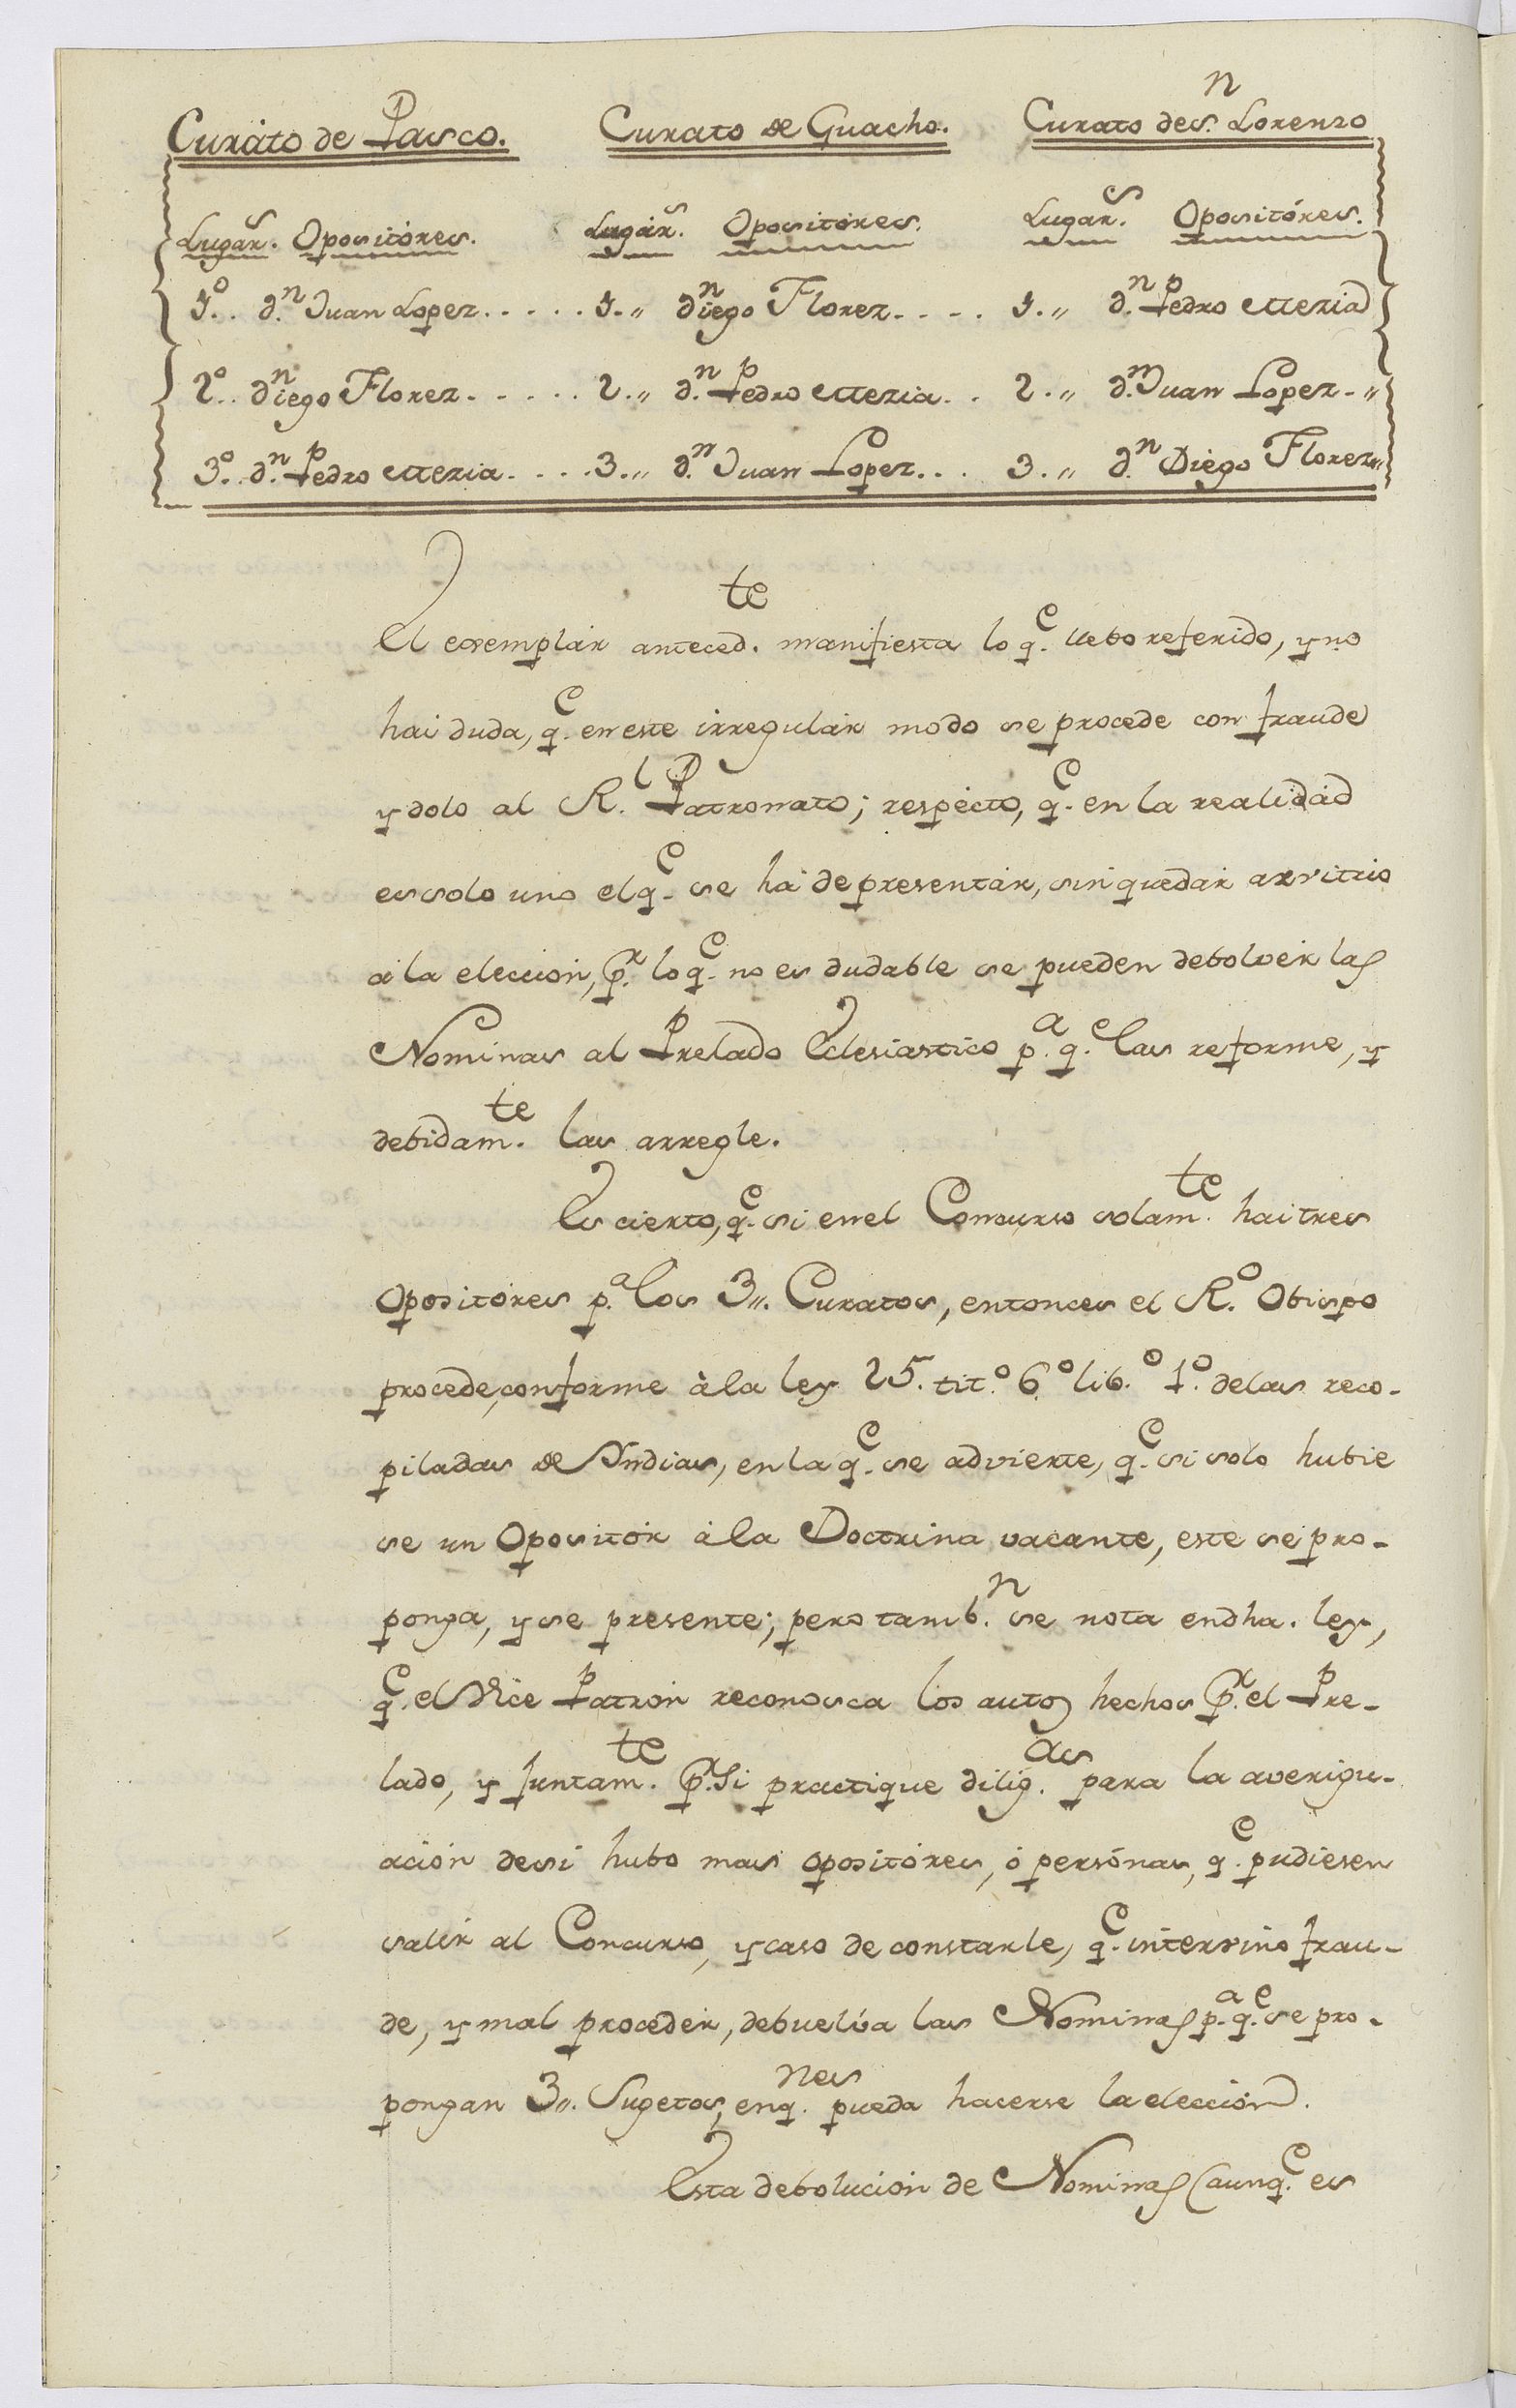 Curáto de Pasco. Curato de Guacho. Curato de S.n Lorenzo
Lugar.s Opositóres. Lugár.s Opositóres. Lugar.s Opositóres.
1.º d.n Juan Lopez..... 1.,, d.n Diego Florez.... 1.,, d.n Pedro Mexia
2.º d.n Diego Florez..... 2.,, d.n Pedro Mexia.. 2.,, d.n Juan Lopez.,,
3.º d.n Pedro Mexia.... 3.,, d.n Juan Lopez... 3.,, d.n Diego Florez,,
El exemplár anteced.te manifiesta lo q.e llebo referido, y no
hai duda, q.e en este irregulár modo se procede con fraude
y dolo al R.l Patronato; respécto, q.e en la realidád
es solo uno el q.e se há de presentár, sin quedár arvitrio
á la eleccion, p.r lo q.e no es dudable se pueden debolvér las
Nominas al Prelado Eclesiastico p.a q.e las reforme, y
debidam.te las arregle.
Es cierto, q.e si en el Concurso solam.te hai tres
Opositóres p.a los 3,,. Curatos, entonces el R.o Obispo
procede, conforme á la ley 25. tit.o 6.o lib.o 1.o de las reco-
piladas de Yndias, en la q.e se advierte, q.e si solo hubie
se un Opositór á la Doctrina vacante, este se pro-
ponga, y se presente; pero tamb.n se nota en dha. ley,
q.e el Vice Patrón reconosca los autos hechos p.r el Pre-
lado, y juntam.te p.r Si practique dilig.as para la averigu-
ación de si hubo mas opositóres, ó persónas, q.e pudiesen
salir al Concurso, y caso de constarle, q.e intervino frau-
de, y mal procedér, debuelva las Nominas p.a q.e se pro-
pongan 3,,. Sugetos, en q.nes pueda hacerse la elección.
Esta debolución de Nominas (aunq.e es